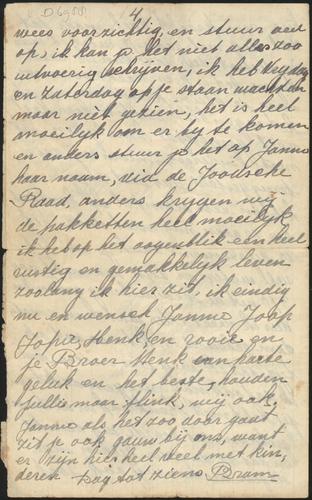 D6958
4
wees voorzichtig, en stuur veel
op, ik kan je het niet alles zoo
uitvoerig schrijven, ik heb Vrijdag
en Zaterdag op je staan wachten
maar niet gezien, het is heel
moeilijk om er bij te komen
en anders stuur je het op Janne
haar naam, via de Joodsche
Raad, anders krijgen wij
de pakketten heel moeilijk
ik heb op het oogenblik een heel
rustig en gemakkelijk leven
zoolang ik hier zit, ik eindig
nu en wensch Janne Joop
Jopie, Henk, en rooie en
je Broer Henk van harte
geluk en het beste, houden
jullie maar flink, wij ook,
Janne als het zoo door gaat
zit je ook gauw bij ons, want
er zijn hier heel veel met kin,
deren Dag tot ziens Bram